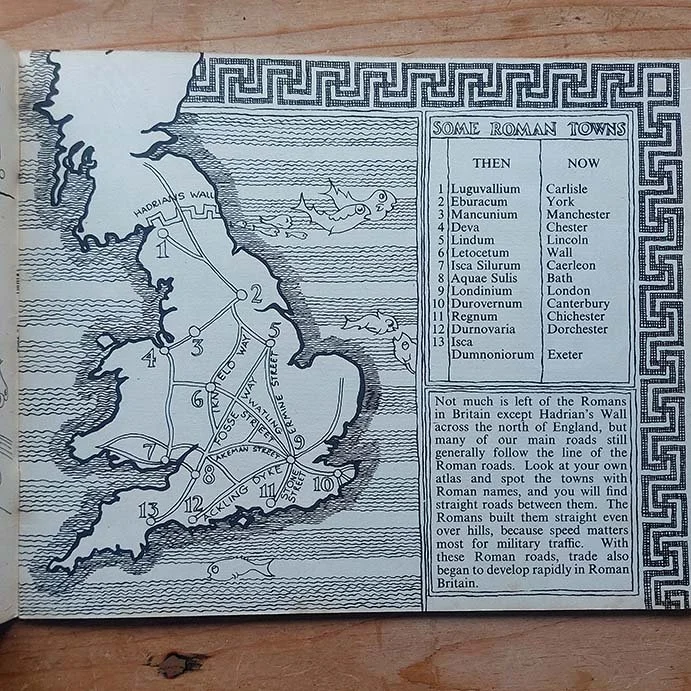 SOME ROMAN TOWNS
THEN NOW
1 Luguvallium Carlisle
2 Eburacum York
3 Mancunium Manchester
4 Deva Chester
5 Lindum Lincoln
6 Letocetum Wall
7 Isca Silurum Caerleon
8 Aquae Sulis Bath
9 Londinium London
10 Durovernum Canterbury
11 Regnum Chichester
12 Durnovaria Dorchester
13 Isca
Dumnoniorum Exeter
HADRIAN'S WALL
1
2
3
4
5
6
IKNIELD WAY
FOSSE WAY
WATLING STREET
ERMINE STREET
AKEMAN STREET
7
8
9
10
ACKLING DYKE
STONE STREET
11
12
13
Not much is left of the Romans
in Britain except Hadrian's Wall
across the north of England, but
many of our main roads still
generally follow the line of the
Roman roads. Look at your own
atlas and spot the towns with
Roman names, and you will find
straight roads between them. The
Romans built them straight even
over hills, because speed matters
most for military traffic. With
these Roman roads, trade also
began to develop rapidly in Roman
Britain.